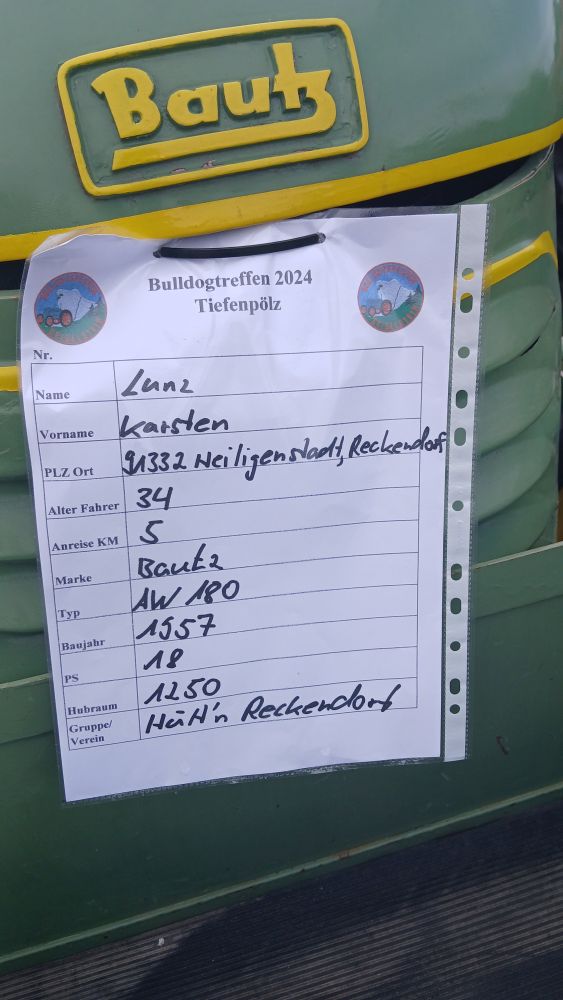 Bautz
Bulldogtreffen 2024
Tiefenpölz
Nr.
Name Lunz
Vorname Karsten
PLZ Ort 91332 Heiligenstadt, Reckendorf
Alter Fahrer 34
Anreise KM 5
Marke Bautz
Typ AW 180
Baujahr 1957
PS 18
Hubraum 1250
Gruppe/
Verein Hütt'n Reckendorf